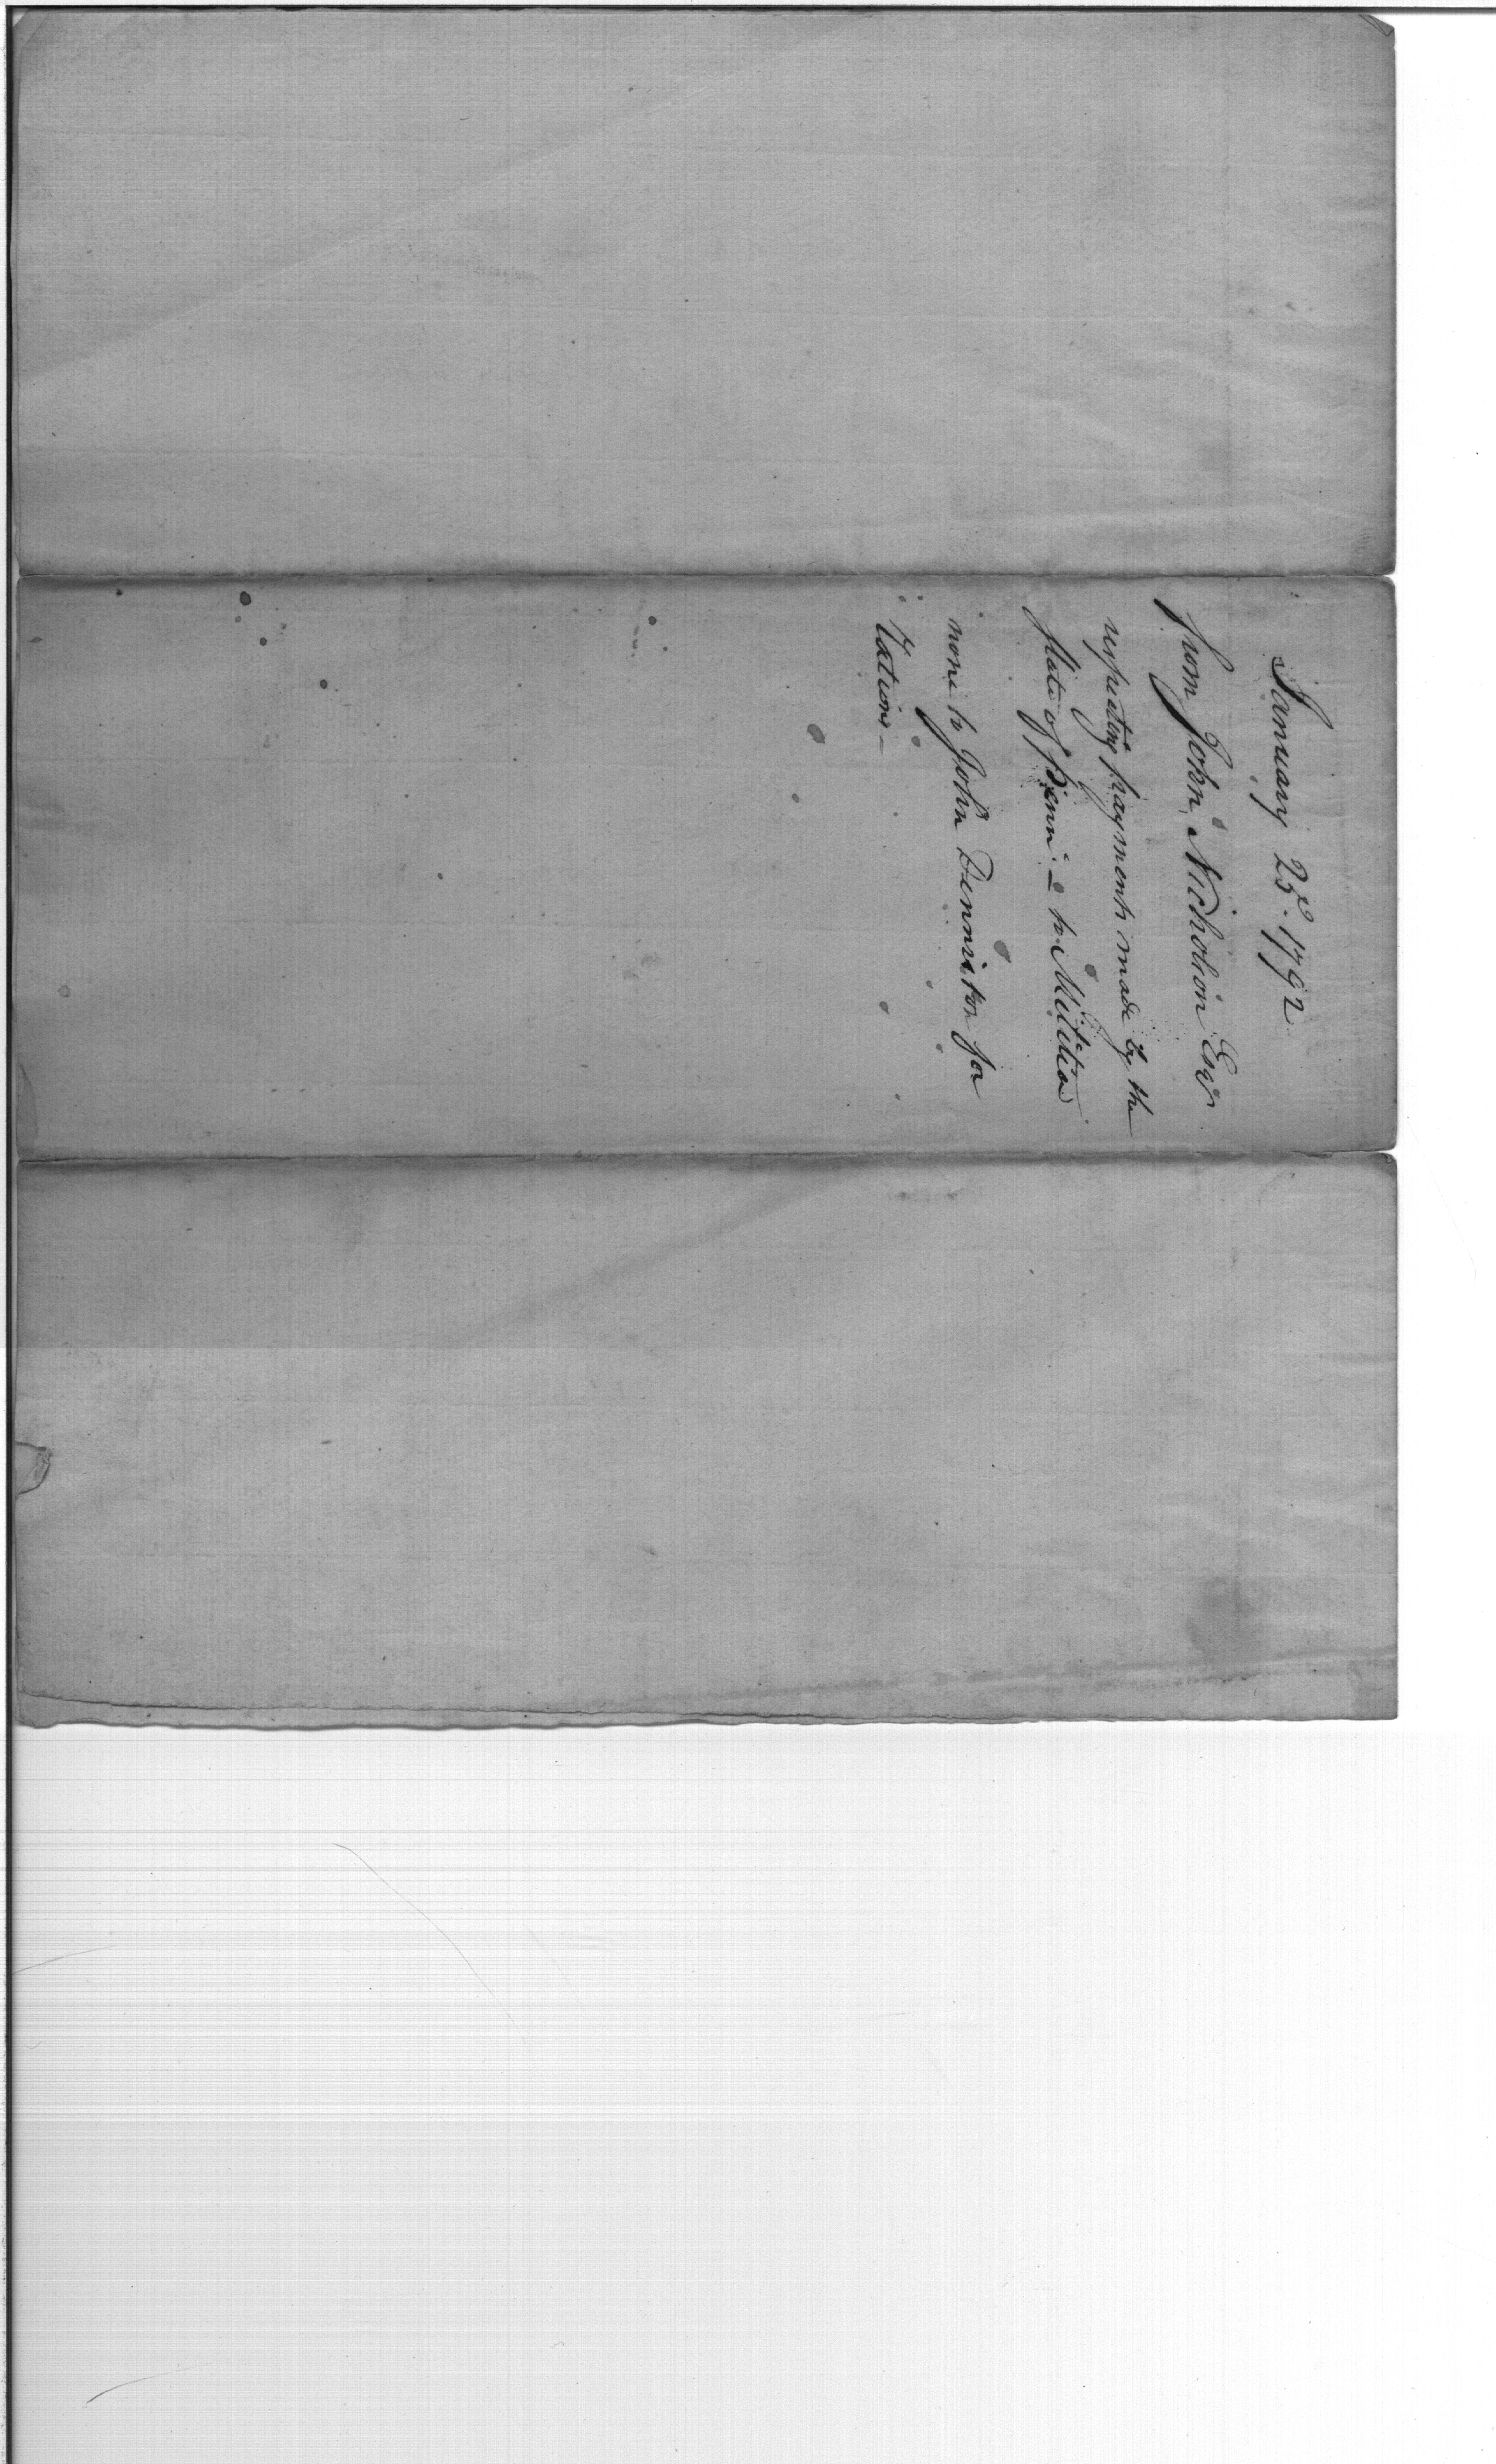 January 25th. 1792
from John Nicholson Esqr
respecting payments made by the
State of Penna. – to Militia
none to John Denniston for
Rations –